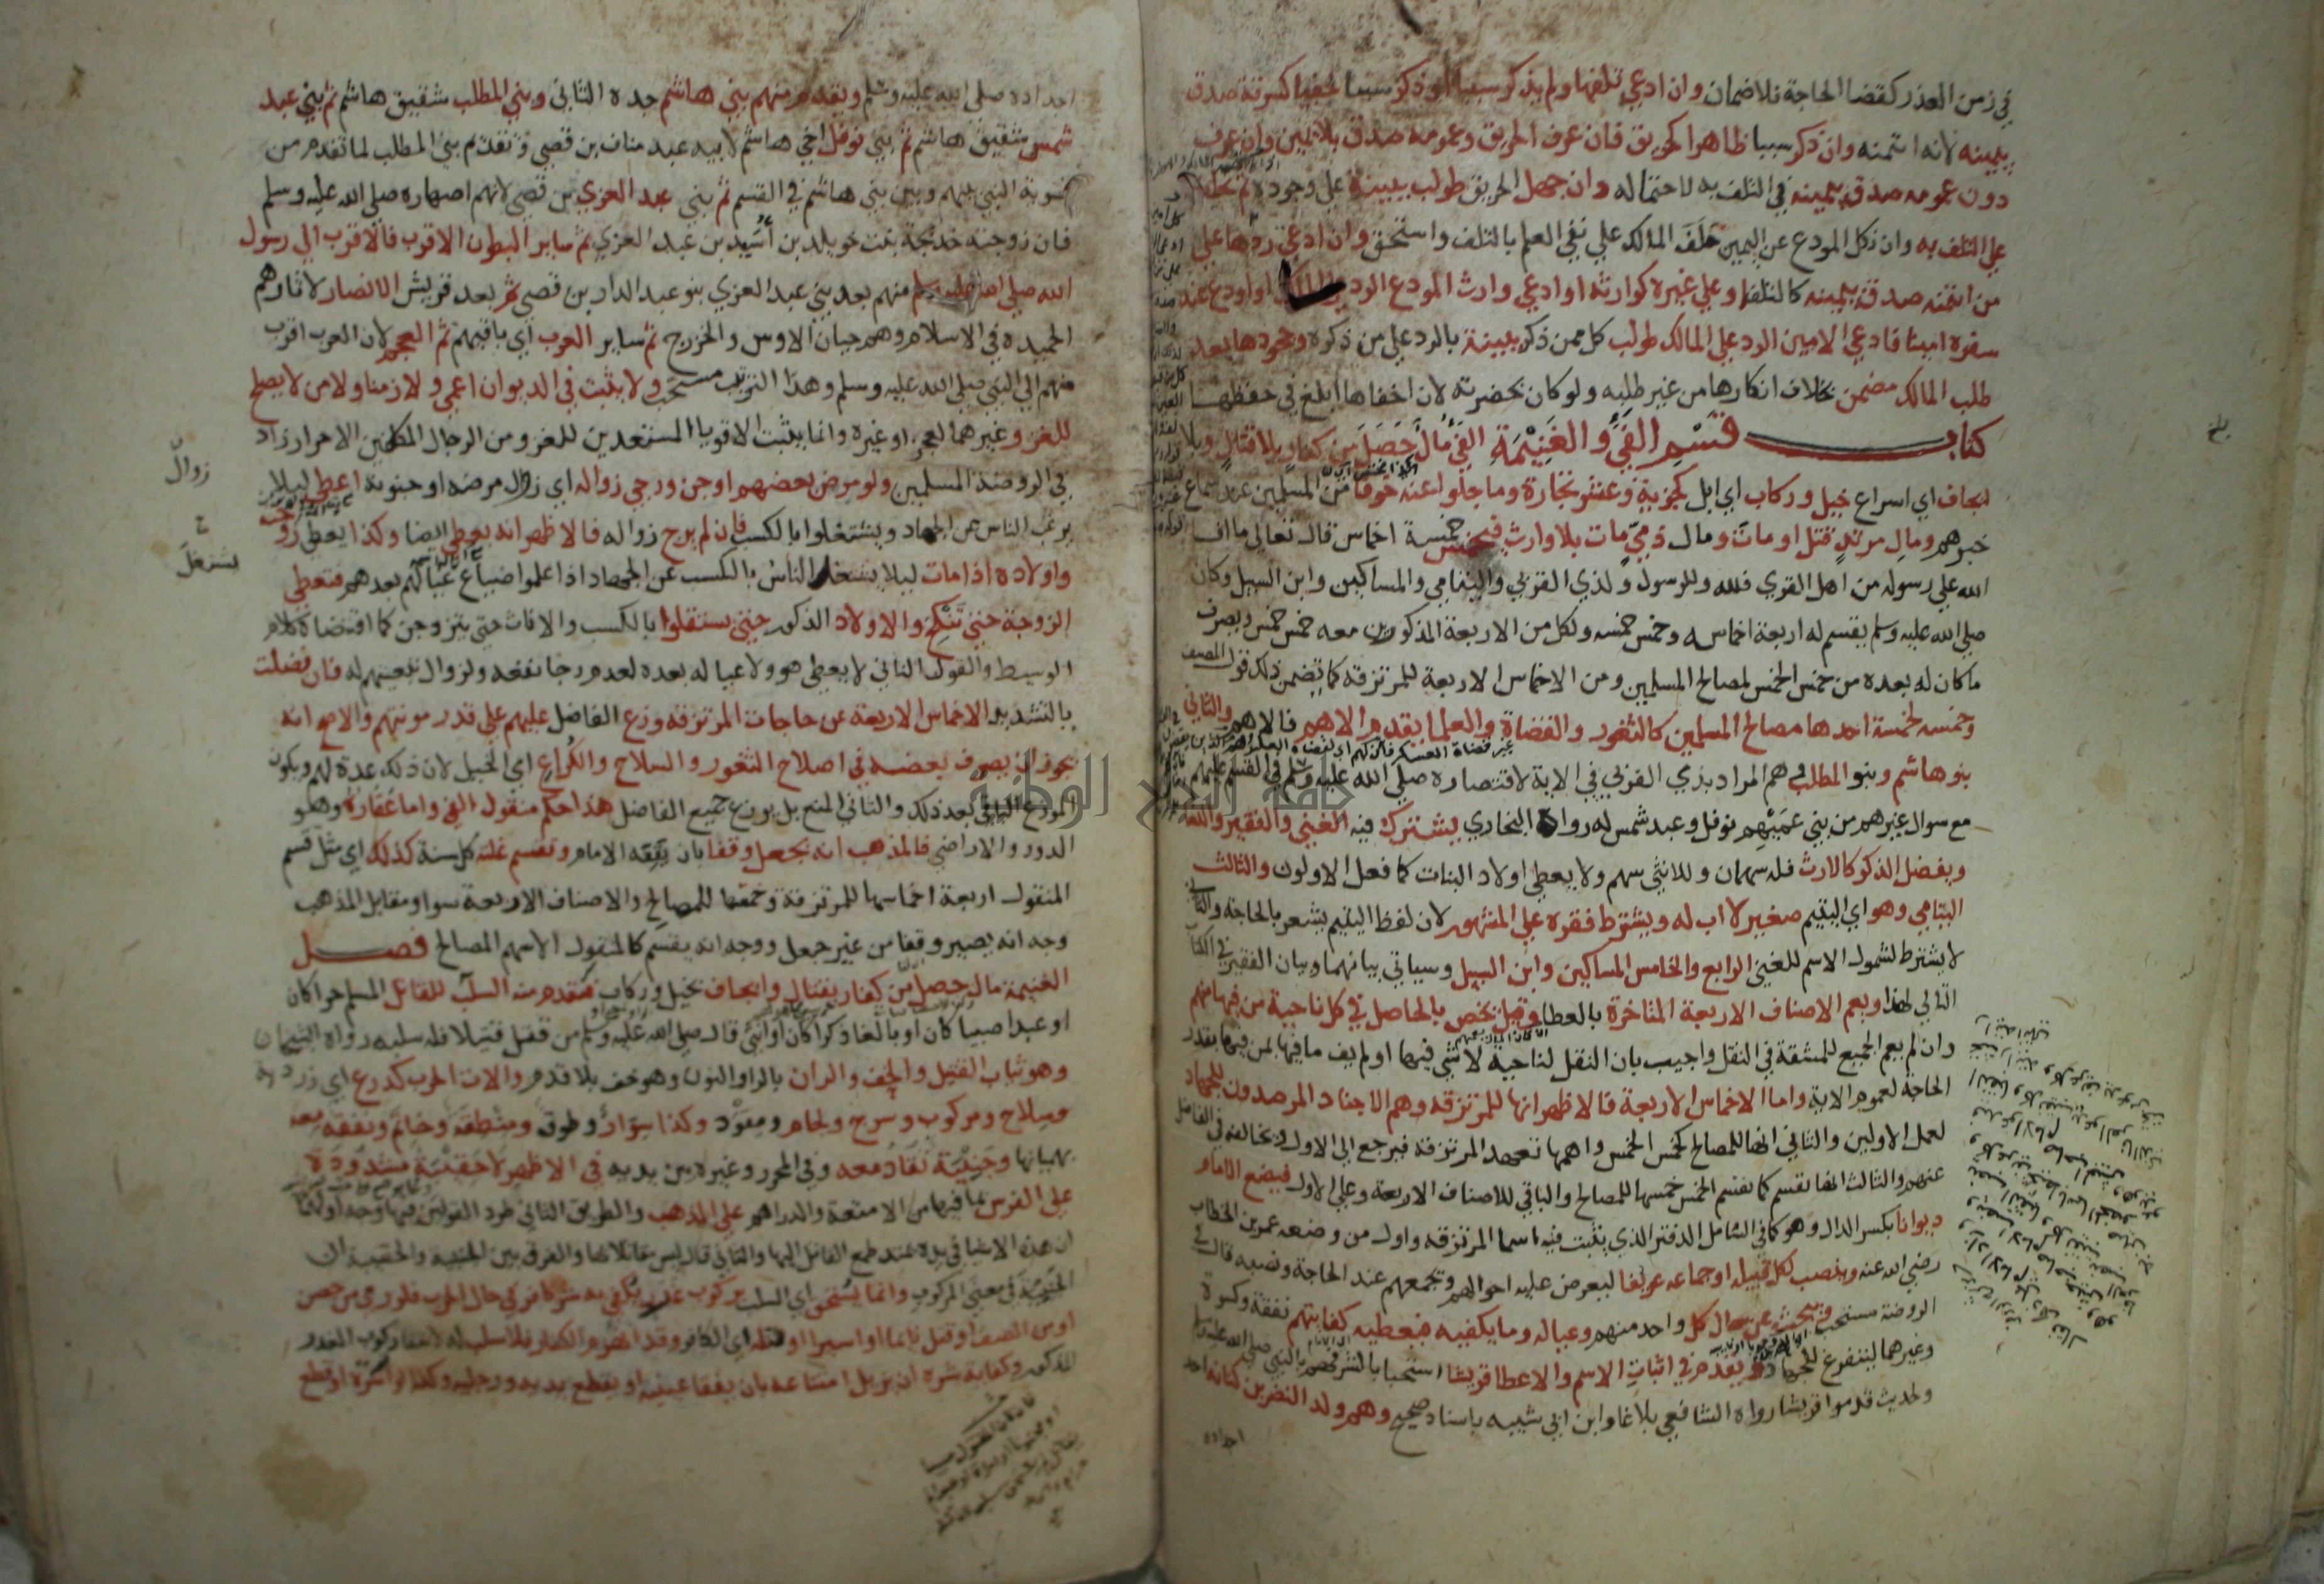 في زمن العذر كقضا الحاجة فلا ضمان وان ادعي تلفها ولم يذكر سببا او ذكر سببا خفيا كسرقة صدق
بيمينه لانه ائتمنه وان ذكر سببا ظاهرا كحريق فان عرف الحريق وعمومه صدق بلا يمين وان عرف
دون عمومه صدق بيمينه في التلف به لاحتماله وان جهل الحريق طولب ببينة علي وجوده ثم يحلف
علي التلف به وان نكل المودع عن اليمين حَلَفَ المالك علي نفي العلم بالتلف واستحق وان ادعي ردها علي
من ائتمنه صدق بيمينه كالتلف او علي غيره كوارثه او ادعي وارث المودع الرد علي المالك او اودع عند
سفره امينا فادعي الامين الرد علي المالك طولب كل ممن ذكر ببينة بالرد علي من ذكره وجحودها بعد
طلب المالك مضمن بخلاف انكارها من غير طلبه ولو كان بحضرته لان اخفاها ابلغ في حفظها
كتاب قَسْمِ الفَيْ والغَنِيْمَةِ الفَيْ مالٌ حَصَلَ من كفارٍ بلا قتالٍ وبلا
ايجاف اي اسراع خيل وركاب اي ابل كجزية وعشر تجارة وما جلوا عنه خوفا من المسلمين عند سماع
خبرهم ومالِ مرتدٍ قتل او مات ومال ذميٍّ مات بلا وارث فيخمس خمسة اخماس قال تعالي ما افا
الله علي رسوله من اهل القري فلله وللرسول ولذي القربي واليتامي والمساكين وابن السبيل وكان
صلي الله عليه وسلم يقسم له اربعة اخماسه وخمس خمسه ولكل من الاربعة المذكورين معه خمس خمس ويصرف
ما كان له بعده من خمس الخمس لمصالح المسلمين ومن الاخماس الاربعة للمرتزقة كما تضمن ذلك قول المصنف
وخمسه لخمسة احدها مصالح المسلمين كالثغور والقضاة والعلما يقدم الاهم فالاهم والثاني
بنو هاشم وبنو المطلب هم المراد بذي القربي في الاية لاقتصاره صلي الله عليه وسلم في القسم عليهم
مع سوال غيرهم من بني عميهم نوفل وعبد شمس له رواه البخاري يشترك فيه الغني والفقير والنسا
ويفضل الذكر كالارث فله سهمان وللانثي سهم ولا يعطي اولاد البنات كما فعل الاولون والثالث
اليتامي وهو اي اليتيم صغير لا اب له ويشترط فقره علي المشهور لان لفظ اليتيم يشعر بالحاجة والثاني
لا يشترط لشمول الاسم للغني الرابع والخامس المساكين وابن السبيل وسياتي بيانهما وبيان الفقير في الكتاب
التالي لهذا ويعم الاصناف الاربعة المتاخرة بالعطا وقيل يخص بالحاصل في كل ناحية من فيها منهم
وان لم يعم الجميع للمشقة في النقل واجيب بان النقل لناحية لا شي فيها او لم يف ما فيها لمن فيها بقدر
الحاجة لعموم الاية واما الاخماس الاربعة فالاظهر انها للمرتزقة وهم الاجناد المرصدون للجهاد
لعمل الاولين والثاني انها للمصالح كخمس الخمس واهمها تعهد المرتزقة فيرجع الي الاول ويخالفه في الفاضل
عنهم والثالث انها تقسم كما يقسم الخمس خمسها للمصالح والباقي للاصناف الاربعة وعلي الاول فيضع الامام
ديوانا بكسر الدال وهو كما في الشامل الدفتر الذي يثبت فيه اسما المرتزقة واول من وضعه عمر بن الخطاب
رضي الله عنه وينصب لكل قبيلة او جماعة عريفا ليعرض عليه احوالهم ويجمعهم عند الحاجة ونصبه قال في
الروضة مستحب فيبحث عن حال كل واحد منهم وعياله وما يكفيه فيعطيه كفايتهم نفقة وكسوة
وغيرهما ليتفرغ للجهاد ويقدم في اثبات الاسم والاعطا قريشا استحبابا لشرفهم بالنبي صلي الله عليه وسلم
ولحديث قدموا قريشا رواه الشافعي بلاغا وابن ابي شيبه باسناد صحيح وهم ولد النضر بن كنانة احد
اجداده
اجداده صلي الله عليه وسلم ويقدم منهم بني هاشم جده الثاني وبني المطلب شقيق هاشم ثم بني عبد
شمس شقيق هاشم ثم بني نوفل اخي هاشم لابيه عبد مناف بن قصي وتقديم بني المطلب لما تقدم من
تسوية النبي بينهم وبين بني هاشم في القسم ثم بني عبد العزي بن قصي لانهم اصهاره صلي الله عليه وسلم
فان زوجته خديجة بنت خويلد بن أسَيد بن عبد العزي ثم ساير البطون الاقرب فالاقرب الي رسول
الله صلي الله عليه وسلم منهم بعد بني عبد العزي بنو عبد الدار بن قصي ثم بعد قريش الانصار لاثارهم
الحميدة في الاسلام وهم حيان الاوس والخزرج ثم ساير العرب اي باقيهم ثم العجم لان العرب اقرب
منهم الي النبي صلي الله عليه وسلم وهذا الترتيب مستحب ولا يثبت في الديوان اعمي ولا زمنا ولا من لا يصلح
للغزو وغيرهما لعجز او غيره وانما يثبت الاقويا المستعدين للغزو ومن الرجال المكلفين الاحرار زاد
في الروضة المسلمين ولو مرض بعضهم او جن ورجي زواله اي زوال مرضه او جنونه اعطي ليلا
يرغب الناس عن الجهاد ويشتغلوا بالكسب فان لم يرج زواله فالاظهر انه يعطي ايضا وكذا يعطي زوجته
واولاده اذا مات ليلا يشتغل الناس بالكسب عن الجهاد اذا علموا ضياع عيالهم بعدهم فتعطي
الزوجة حتي تَنْكِحَ والاولاد الذكور حتي يستقلوا بالكسب والاناث حتي يتزوجن كما اقتضاه كلام
الوسيط والقول الثاني لا يعطي هو ولا عياله بعده لعدم رجا نفعه ولزوال تبعيتهم له فان فضلت
بالتشديد الاخماس الاربعة عن حاجات المرتزقة وزع الفاضل عليهم علي قدر مونتهم والاصح انه
يجوز ان يصرف بعضه في اصلاح الثغور والسلاح والكُراع اي الخيل لان ذلك عدة لهم ويكون
الموزع الباقي بعد ذلك والثاني المنع بل يوزع جميع الفاضل هذا حكم منقول الفي واما عقاره وهو
الدور والاراضي فالمذهب انه يجعل وقفا بان يقفه الامام وتقسم غلته كل سنة كذلك اي مثل قسم
المنقول اربعة اخماسها للمرتزقة وخمسها للمصالح والاصناف الاربعة سوا ومقابل المذهب
وجه انه يصير وقفا من غير جعل ووجه انه يقسم كالمنقول الا سهم المصالح فصل
الغنيمة مال حصل من كفار بقتال وايجاف بخيل وركاب فيقدم منه السلب للقاتل المسلم حرا كان
او عبدا صبيا كان او بالغا ذكرا كان او انثي قال صلي الله عليه وسلم من قتل قتيلا فله سلبه رواه الشيخان
وهو ثياب القتيل والخف والران بالرا والنون وهو خف بلا قدم والات الحرب كدرع اي زردية
وسلاح ومركوب وسرج ولجام ومقوَد وكذا سِوَار وطوق ومِنْطقَة وخاتَم ونفقة معه
بهميانها وجَنِيْبَة تُقَادُ معه وفي المحرر وغيره بين يديه في الاظهر لا حقيبَة مشدُودَة
علي الفرس بما فيها من الامتعة والدراهم علي المذهب والطريق الثاني طرد القولين فيها وجه الاول
ان هذه الاشيا في يده عند طمع القاتل اليها والثاني قال ليس مقاتلا بها والفرق بين الجنيبة والحقيبة ان
الجنيبة في معني المركوب وانما يستحق اي السلب بركوب غرر يكفي به شر كافر في حال الحرب فلو رمي من حصن
او من الصف او قتل نايما او اسيرا او قتله اي الكافر وقد انهزم الكفار فلا سلب له لانتفا ركوب الغرر
المذكور وكفاية شره ان يزيل امتناعه بان يفقا عينيه او يقطع يديه ورجليه وكذا لو اسَره او قطع
زوال
يشتغل
جامعة النجاح الوطنية